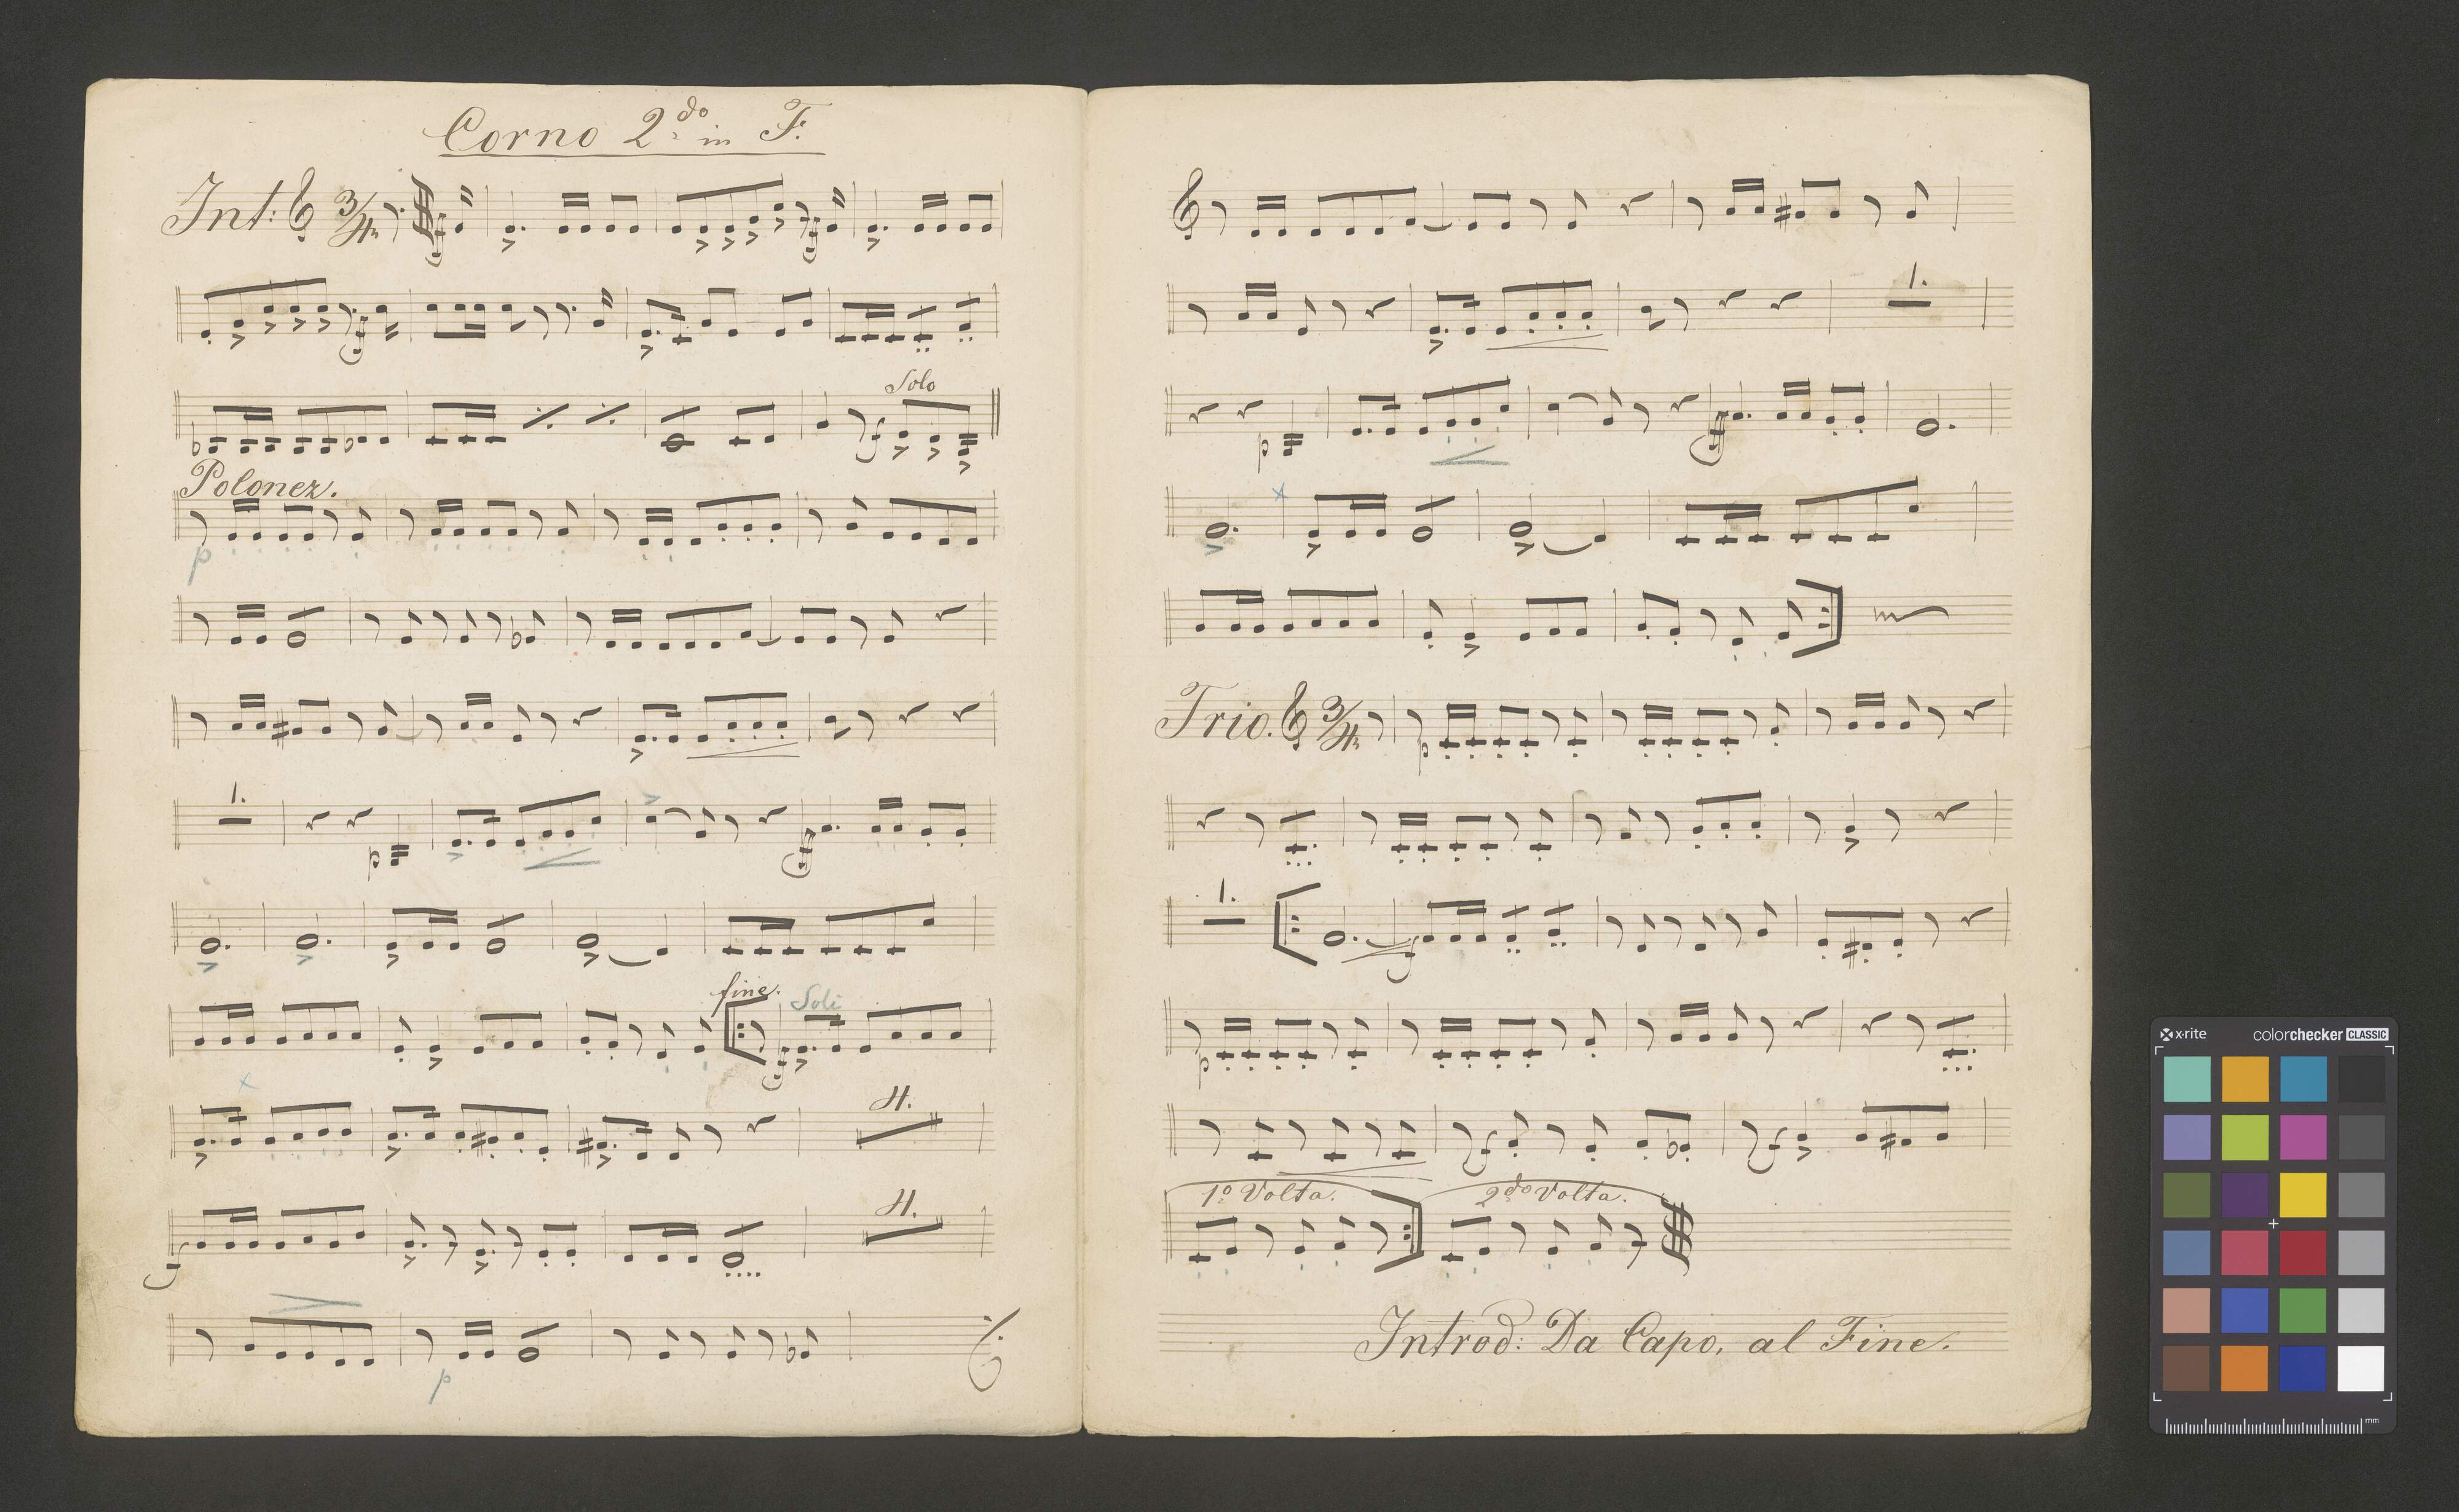 Corno 2do in F.
Int: 3/4
Solo
Polonez.
p
1.
p
fine. Soli
4.
f 4.
p
1.
p
Trio. 3/4
p
1.
f
p
f f
1o Volta. 2do Volta.
Introd: Da Capo, al Fine.
x-rite colorchecker CLASSIC
mm